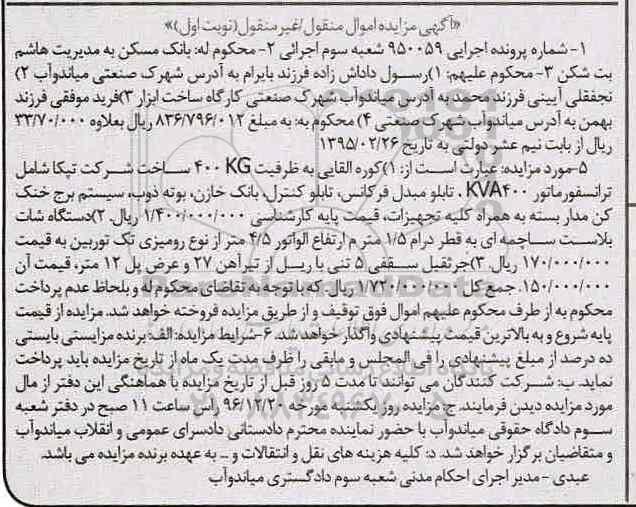 «آگهی مزایده اموال منقول/غیر منقول(نوبت اول)»
۱- شماره پرونده اجرایی ۹۵۰۰۵۹ شعبه سوم اجرائی ۲- محکوم له: بانک مسکن به مدیریت هاشم
بت شکن ۳- محکوم علیهم: ۱)رسول داداش زاده فرزند بایرام به آدرس شهرک صنعتی میاندوآب ۲)
نجفقلی آیینی فرزند محمد به آدرس میاندوآب شهرک صنعتی کارگاه ساخت ابزار ۳)فرید موفقی فرزند
بهمن به آدرس میاندوآب شهرک صنعتی ۴) محکوم به: به مبلغ ۸۳۶/۷۹۶/۰۱۲ ریال بعلاوه ۳۳/۷۰/۰۰۰
ریال از بابت نیم عشر دولتی به تاریخ ۱۳۹۵/۰۲/۲۶
۵-مورد مزایده: عبارت است از: ۱)کوره القایی به ظرفیت ۴۰۰ KG ساخت شرکت تپکا شامل
ترانسفورماتور KVA۴۰۰ ، تابلو مبدل فرکانس، تابلو کنترل، بانک خازن، بوته ذوب، سیستم برج خنک
کن مدار بسته به همراه کلیه تجهیزات، قیمت پایه کارشناسی ۱/۴۰۰/۰۰۰/۰۰۰ ریال. ۲)دستگاه شات
بلاست ساچمه ای به قطر درام ۱/۵ متر م ارتفاع الواتور ۴/۵ متر از نوع رومیزی تک توربین به قیمت
۱۷۰/۰۰۰/۰۰۰ ریال. ۳)جرثقیل سقفی ۵ تنی با ریل از تیرآهن ۲۷ و عرض پل ۱۲ متر، قیمت آن
۱۵۰/۰۰۰/۰۰۰. جمع کل ۱/۷۲۰/۰۰۰/۰۰۰ ریال. که با توجه به تقاضای محکوم له و بلحاظ عدم پرداخت
محکوم به از طرف محکوم علیهم اموال فوق توقیف و از طریق مزایده فروخته خواهد شد. مزایده از قیمت
پایه شروع و به بالاترین قیمت پیشنهادی واگذار خواهد شد. ۶-شرایط مزایده: الف: برنده مزایستی بایستی
ده درصد از مبلغ پیشنهادی را فی المجلس و مابقی را ظرف مدت یک ماه از تاریخ مزایده باید پرداخت
نماید. ب: شرکت کنندگان می توانند تا مدت ۵ روز قبل از تاریخ مزایده با هماهنگی این دفتر از مال
مورد مزایده دیدن فرمایند. ج: مزایده روز یکشنبه مورخه ۹۶/۱۲/۲۰ راس ساعت ۱۱ صبح در دفتر شعبه
سوم دادگاه حقوقی میاندوآب با حضور نماینده محترم دادستانی دادسرای عمومی و انقلاب میاندوآب
و متقاضیان برگزار خواهد شد. د: کلیه هزینه های نقل و انتقالات و ... به عهده برنده مزایده می باشد.
عبدی- مدیر اجرای احکام مدنی شعبه سوم دادگستری میاندوآب